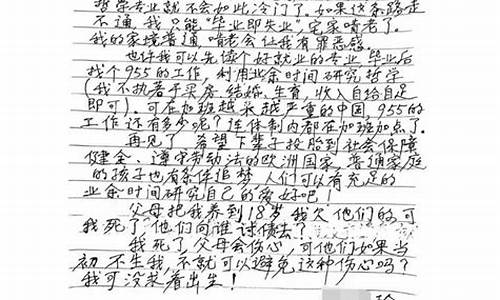 哲学专业就不会如此冷门了。如果这条路走
不通,我只能"毕业即失业",宅家啃老了。
我的家境普通,啃老会让我有罪恶感。
也许我可以先读个好就业的专业,毕业后
找个955的工作,利用业余时间研究哲学
(我不执着于买房、结婚、生育,收入自给自足
即可)。可在加班越来越严重的中国,955的
工作还有多少呢?连体制内都在加班加点了。
再见了,希望下辈子投胎到社会保障
健全、遵守劳动法的欧洲国家,普通家庭
的孩子也有条件追梦,人们可以有充足的
业余时间研究自己的爱好吧!
父母把我养到18岁,我欠他们的,可
我死了,他们向谁讨债去?
我死了,父母会伤心,可他们如果当
初不生我,不就可以避免这种伤心吗?
我可没求着出生!